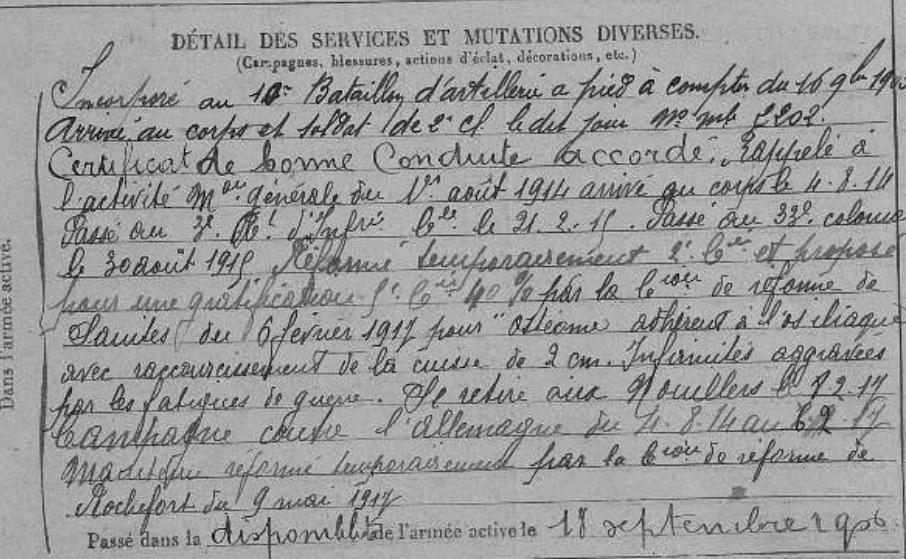 DÉTAIL DES SERVICES ET MUTATIONS DIVERSES.
(Campagnes, blessures, actions d'éclat, décorations, etc.)
Incorporé au 10e Bataillon d'artillerie a pied à compter du 16 9bre
Arrivé au corps et soldat de 2e cl. le dit jour No mle 2202.
Certificat de bonne Conduite accordé. Rappelé à
l'activité Mon générale du 1er août 1914 arrivé au corps le 4.8.14
Passé au 3e Rt d'Infrie Cle le 21.2.15. Passé au 33e colonial
le 30 août 1915 Réformé temporairement 2e Cie et proposé
pour une gratification 5e Cie 40 % par la Cion de réforme de
du 6 février 1917 pour "ostéome adhérent à l'os iliaque
avec raccourcissement de la cuisse de 2 cm. Infirmités aggravées
par les fatigues de guerre. Se retire aux Nouillers le 2.17
Campagne contre l'allemagne du 4.8.14 au 6.2.17
réformé temporairement par la Cion de réforme de
Rochefort du 9 mai 1917
Passé dans la disponibilité de l'armée active le 18 septembre 1906.
Dans l'armée active.